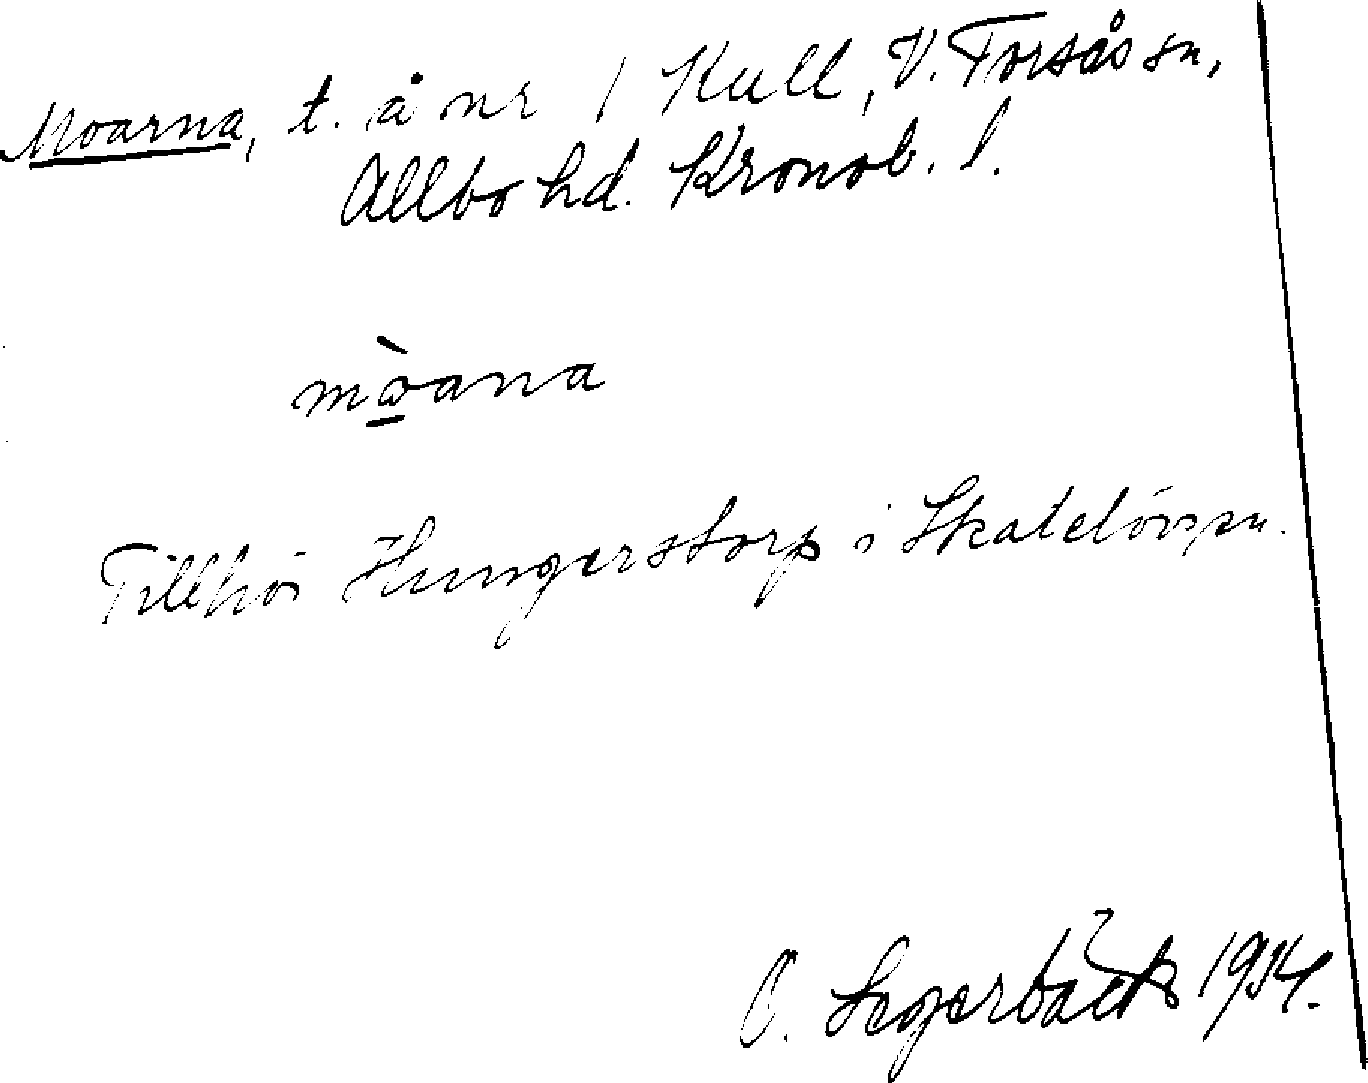 Moarna, t. å nr 1 Kull, V. Torsås sn,
Allbo hd. Kronob. l.
mò̲ana
Tillhör Hungerstorp i Skatelövs sn.
B. Segerbäck 1934.